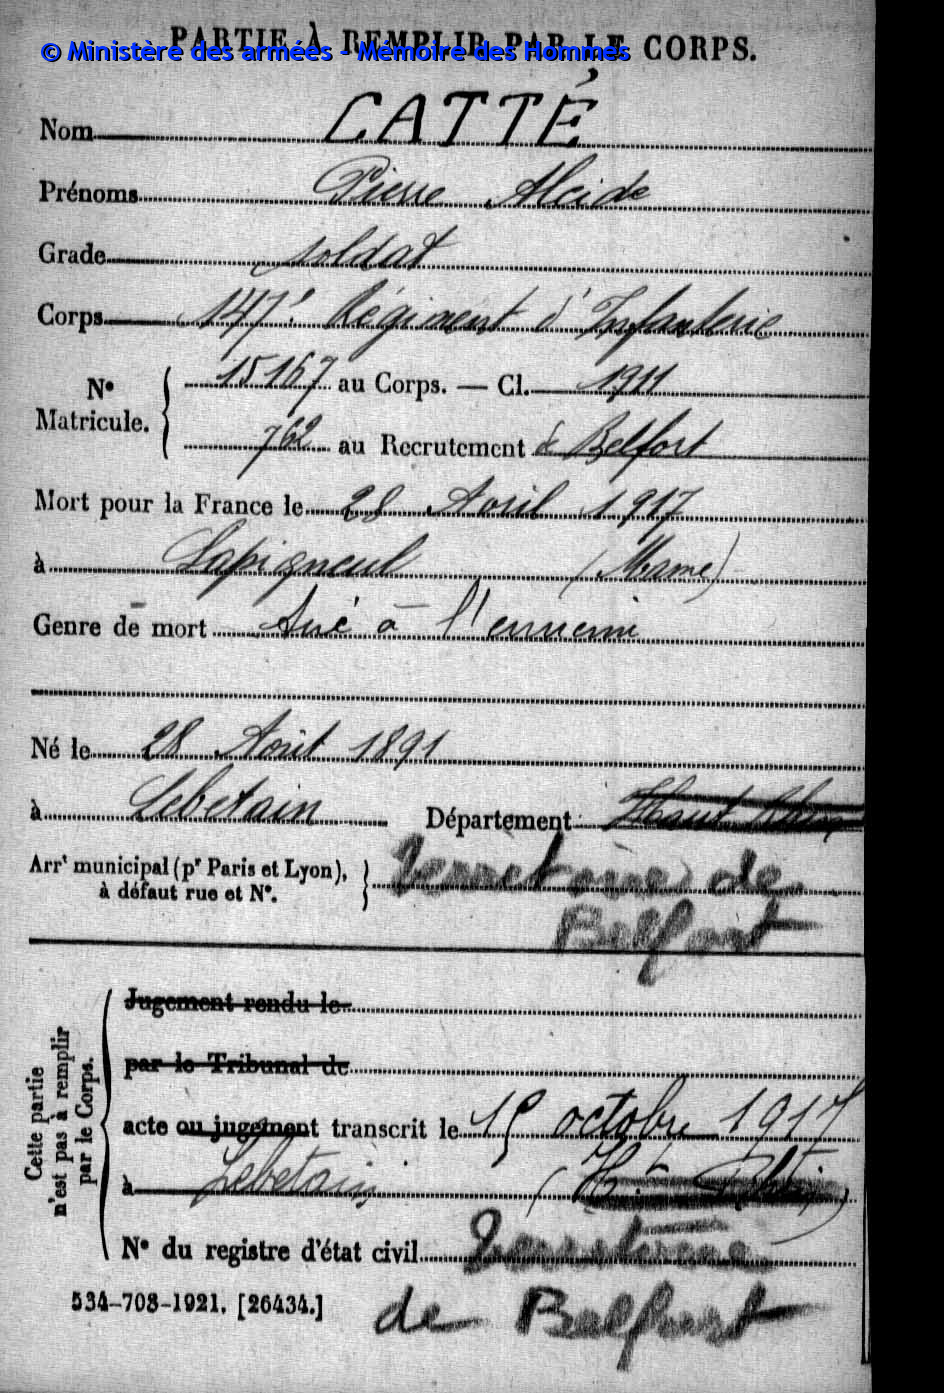 PARTIE À REMPLIR PAR LE CORPS.
© Ministère des armées - Mémoire des Hommes
Nom CATTÉ
Prénoms Pierre Alcide
Grade soldat
Corps 147e Régiment d'Infanterie
N° Matricule. 15167 au Corps. — Cl. 1911
762 au Recrutement de Belfort
Mort pour la France le 28 Avril 1917
à Sapigneul (Marne)
Genre de mort Tué à l'ennemi
Né le 28 Août 1891
à Lebetain Département Haut Rhin
Arrt municipal (pr Paris et Lyon), à défaut rue et N°. Territoire de
Belfort
Cette partie n'est pas à remplir par le Corps.
Jugement rendu le
par le Tribunal de
acte ou jugement transcrit le 15 octobre 1917
à Lebetain (Ht Rhin)
N° du registre d'état civil Territoire
534-708-1921. [26434.] de Belfort